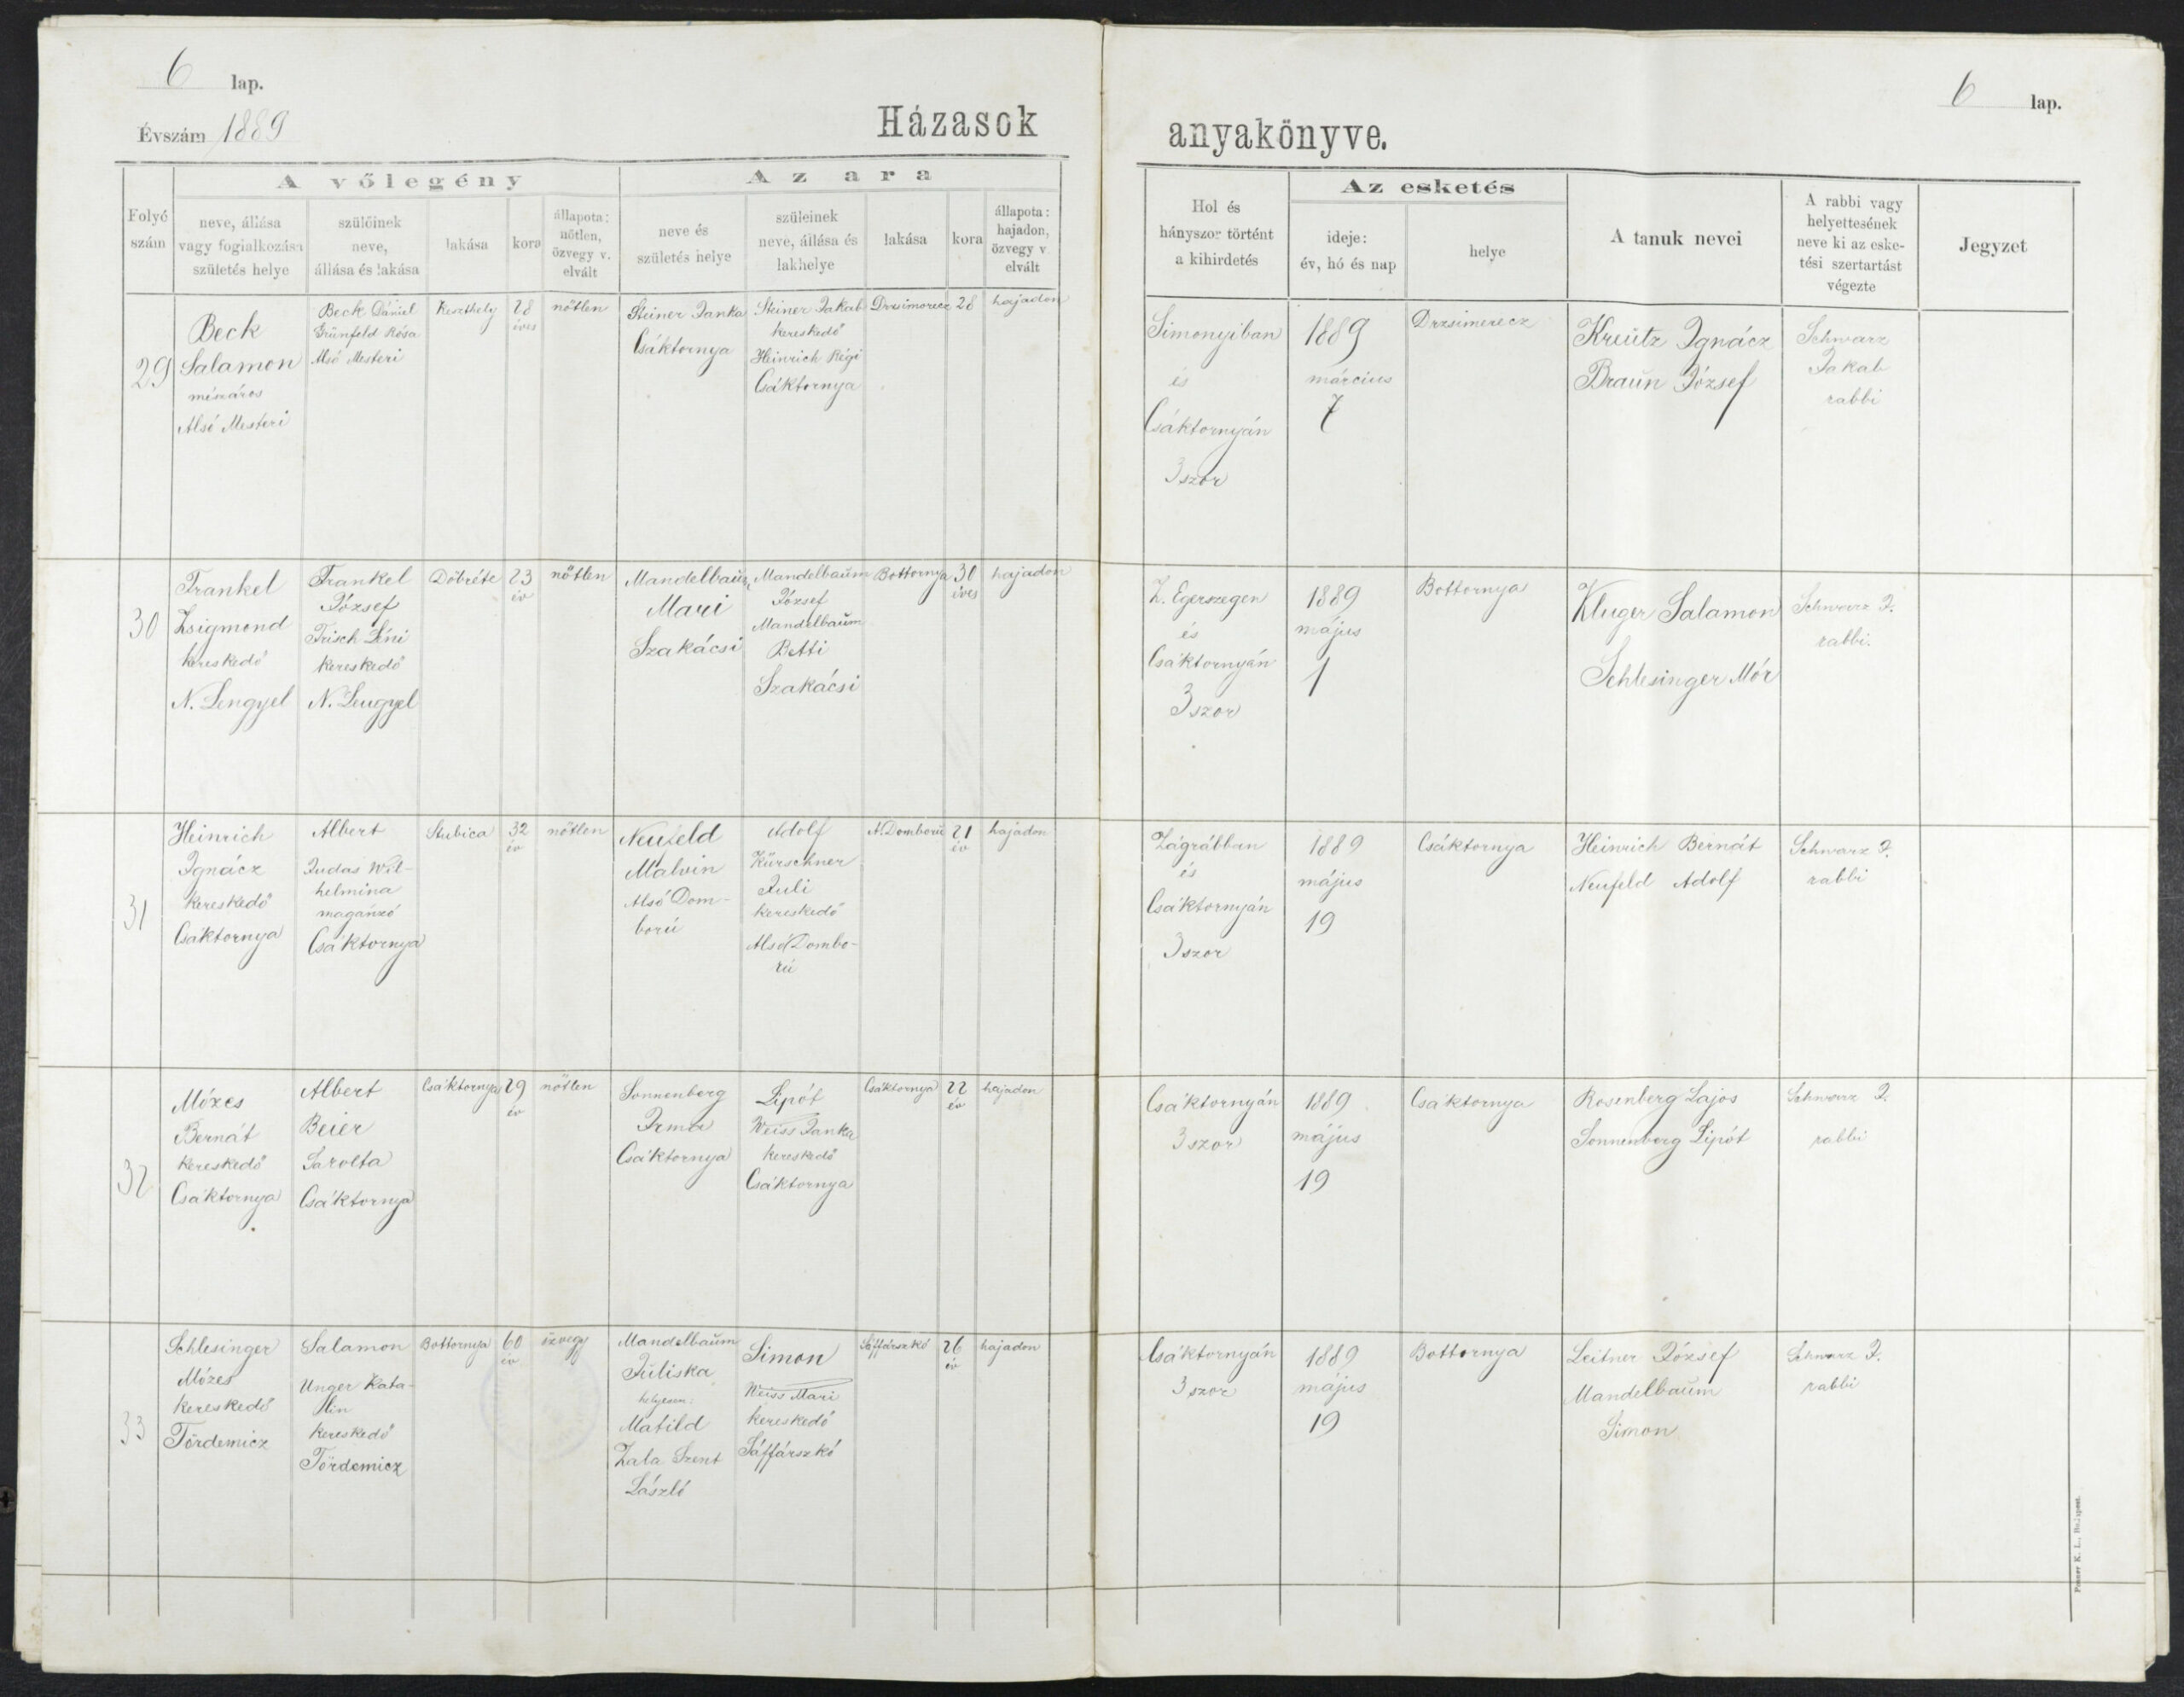 6 lap.
Évszám 1889
Házasok
anyakönyve.
6 lap.
A vőlegény
Az ara
Az esketés
Folyó szám
neve, állása vagy foglalkozása születés helye
szülőinek neve, állása és lakása
lakása
kora
állapota: nőtlen, özvegy v. elvált
neve és születés helye
szüleinek neve, állása és lakhelye
lakása
kora
állapota: hajadon, özvegy v. elvált
Hol és hányszor történt a kihirdetés
ideje: év, hó és nap
helye
A tanuk nevei
A rabbi vagy helyettesének neve ki az esketési szertartást végezte
Jegyzet
29
Beck
Salamon
mészáros
Alsó Mesteri
Beck Dániel
Grünfeld Rósa
Alsó Mesteri
Keszthely
28
éves
nőtlen
Steiner Janka
Csáktornya
Steiner Jakab
kereskedő
Heinrich Régi
Csáktornya
Drzsimorecz
28
hajadon
Simonyiban
és
Csáktornyán
3szor
1889
március
7
Drzsimerecz
Kreütz Ignácz
Braun József
Schwarz
Jakab
rabbi
30
Frankel
Zsigmond
kereskedő
N. Lengyel
Frankel
József
Frisch Léni
kereskedő
N. Lengyel
Döbréte
23
év
nőtlen
Mandelbaum
Mari
Szakácsi
Mandelbaum
József
Mandelbaum
Betti
Szakácsi
Bottornya
30
éves
hajadon
Z. Egerszegen
és
Csáktornyán
3szor
1889
május
1
Bottornya
Kluger Salamon
Schlesinger Mór
Schwarz J.
rabbi.
31
Heinrich
Ignácz
kereskedő
Csáktornya
Albert
Judas Wil-
helmina
magánzó
Csáktornya
Stubica
32
év
nőtlen
Neufeld
Malvin
Alsó Dom-
ború
Adolf
Kürschner
Juli
kereskedő
Alsó Dombo-
rú
A. Domború
21
év
hajadon
Zágrábban
és
Csáktornyán
3szor
1889
május
19
Csáktornya
Heinrich Bernát
Neufeld Adolf
Schwarz J.
rabbi
32
Mózes
Bernát
kereskedő
Csáktornya
Albert
Beier
Sarolta
Csáktornya
Csáktornya
29
év
nőtlen
Sonnenberg
Irma
Csáktornya
Lipót
Weiss Janka
kereskedő
Csáktornya
Csáktornya
22
év
hajadon
Csáktornyán
3szor
1889
május
19
Csáktornya
Rosenberg Lajos
Sonnenberg Lipót
Schwarz J.
rabbi
33
Schlesinger
Mózes
kereskedő
Tördemicz
Salamon
Unger Kata-
lin
kereskedő
Tördemicz
Bottornya
60
év
özvegy
Mandelbaum
Juliska
helyesen:
Matild
Zala Szent
László
Simon
Weiss Mari
kereskedő
Sáffárszkó
Sáffárszkó
26
év
hajadon
Csáktornyán
3szor
1889
május
19
Bottornya
Leitner József
Mandelbaum
Simon
Schwarz J.
rabbi
Posner K. L., Budapest.